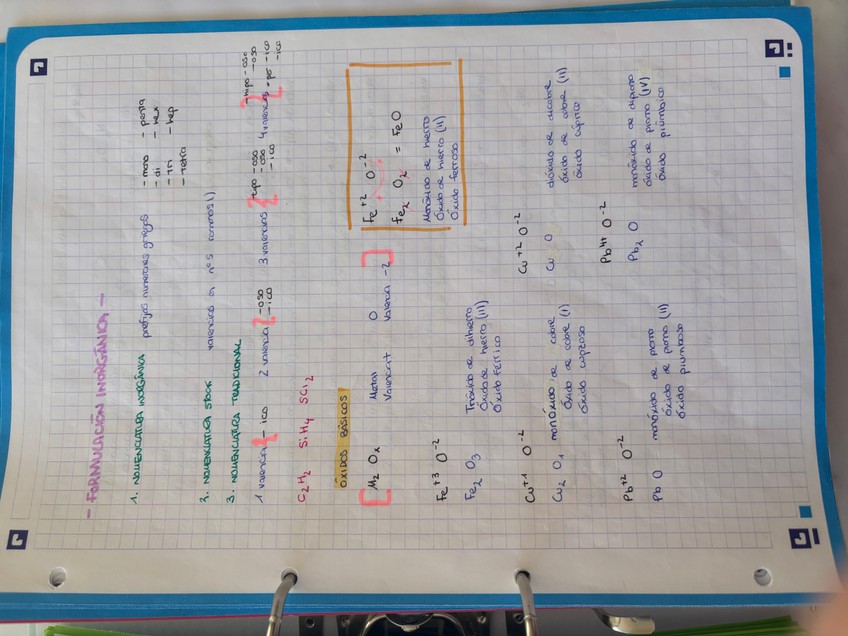 - FORMULACIÓN INORGÁNICA -
1. NOMENCLATURA INORGÁNICA
prefijos numerales griegos
- mono - penta
- di - hex
- tri - hep
- tetra
2. NOMENCLATURA STOCK
valencias en nºs romanos)
3. NOMENCLATURA TRADICIONAL
1 valencia { - ico
2 valencia { -oso
-ico
3 valencias { hipo -oso
-oso
-ico
4 valencias { -hipo -oso
-oso
-ico
-ico
C2H2 SiH4 SCl2
ÓXIDOS BÁSICOS
[ M2 Ox Metal O ]
Valencia + Valencia -2
Fe+2 O-2
Fe2 O2 = FeO
Monóxido de hierro
Óxido de hierro (II)
Óxido ferroso
Fe+3 O-2
Fe2 O3 Trióxido de dihierro
Óxido de hierro (III)
Óxido férrico
Cu+1 O-2
Cu2 O1 monóxido de cobre
óxido de cobre (I)
óxido cuproso
Cu+2 O-2
Cu O dióxido de dicobre
óxido de cobre (II)
óxido cúprico
Pb+2 O-2
Pb O monóxido de plomo
óxido de plomo (II)
óxido plumboso
Pb4+ O-2
Pb2 O monóxido de diplomo
óxido de plomo (IV)
óxido plúmbico